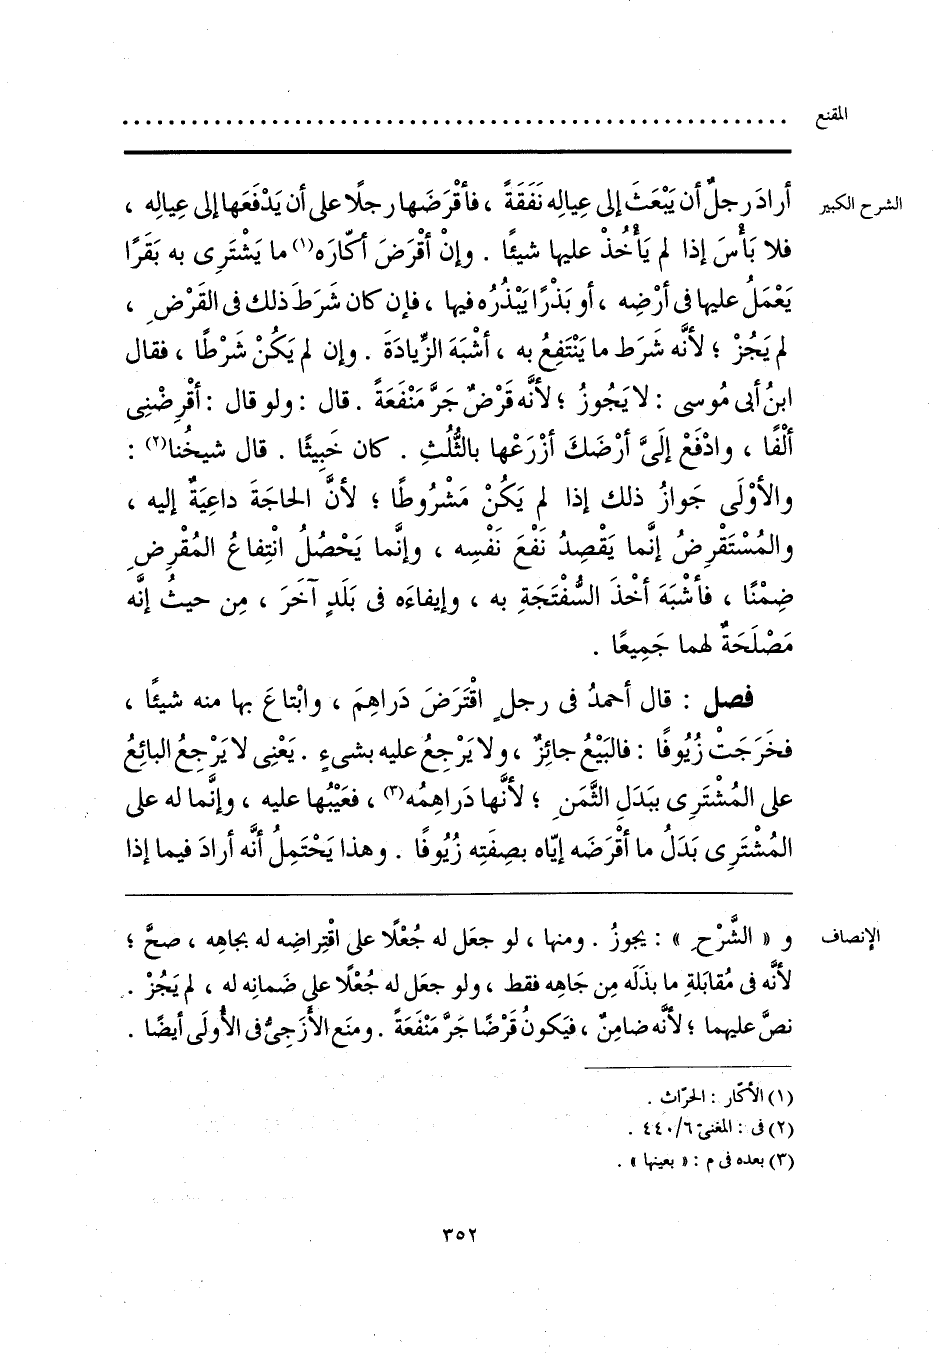 المقنع ............................................................
الشرح الكبير أرادَ رجلٌ أن يَبْعَثَ إلى عِيالِه نَفَقَةً ، فأقْرَضَها رجلًا على أن يَدْفَعَها إلى عِيالِه ،
فلا بَأْسَ إذا لم يَأْخُذْ عليها شيئًا . وإنْ أقْرَضَ أكّارَه(١) ما يَشْتَرِى به بَقَرًا
يَعْمَلُ عليها فى أرْضِه ، أو بَذْرًا يَبْذُرُه فيها ، فإن كان شَرَطَ ذلك فى القَرْضِ ،
لم يَجُزْ ؛ لأنَّه شَرَط ما يَنْتَفِعُ به ، أشْبَهَ الزِّيادَةَ . وإن لم يَكُنْ شَرْطًا ، فقال
ابنُ أبى مُوسى : لا يَجُوزُ ؛ لأنَّه قَرْضٌ جَرَّ مَنْفَعَةً . قال : ولو قال : أقْرِضْنِى
ألْفًا ، وادْفَعْ إلَىَّ أرْضَكَ أزْرَعْها بالثُّلُثِ . كان خَبِيثًا . قال شيخُنا(٢) :
والأوْلَى جَوازُ ذلك إذا لم يَكُنْ مَشْرُوطًا ؛ لأنَّ الحاجَةَ داعِيَةٌ إليه ،
والمُسْتَقْرِضُ إنَّما يَقْصِدُ نَفْعَ نَفْسِه ، وإنَّما يَحْصُلُ انْتِفاعُ المُقْرِضِ
ضِمْنًا ، فأشْبَهَ أخْذَ السُّفْتَجَةِ به ، وإيفاءَه فى بَلَدٍ آخَرَ ، مِن حيثُ إنَّه
مَصْلَحَةٌ لهما جَمِيعًا .
فصل : قال أحمدُ فى رجلٍ اقْتَرَضَ دَراهِمَ ، وابْتاعَ بها منه شيئًا ،
فخَرَجَتْ زُيُوفًا : فالبَيْعُ جائِزٌ ، ولا يَرْجِعُ عليه بشىءٍ . يَعْنِى لا يَرْجِعُ البائِعُ
على المُشْتَرِى ببَدَلِ الثَّمَنِ ؛ لأنَّها دَراهِمُه(٣) ، فعَيْبُها عليه ، وإنَّما له على
المُشْتَرِى بَدَلُ ما أقْرَضَه إيّاه بصِفَتِه زُيُوفًا . وهذا يَحْتَمِلُ أنَّه أرادَ فيما إذا
الإنصاف و « الشَّرْحِ » : يجوزُ . ومنها ، لو جعَل له جُعْلًا على اقْتِراضِه له بجاهِه ، صحَّ ؛
لأنَّه فى مُقابَلَةِ ما بذَلَه مِن جَاهِه فقط ، ولو جعَل له جُعْلًا على ضَمانِه له ، لم يَجُزْ .
نصَّ عليهما ؛ لأنَّه ضامِنٌ ، فيَكونُ قَرْضًا جَرَّ مَنْفَعَةً . ومنَع الأزَجِىُّ فى الأُولَى أيضًا .
(١) الأكّار : الحرّاث .
(٢) فى : المغنى ٦/ ٤٤٠ .
(٣) بعده فى م : « بعينها » .
٣٥٢